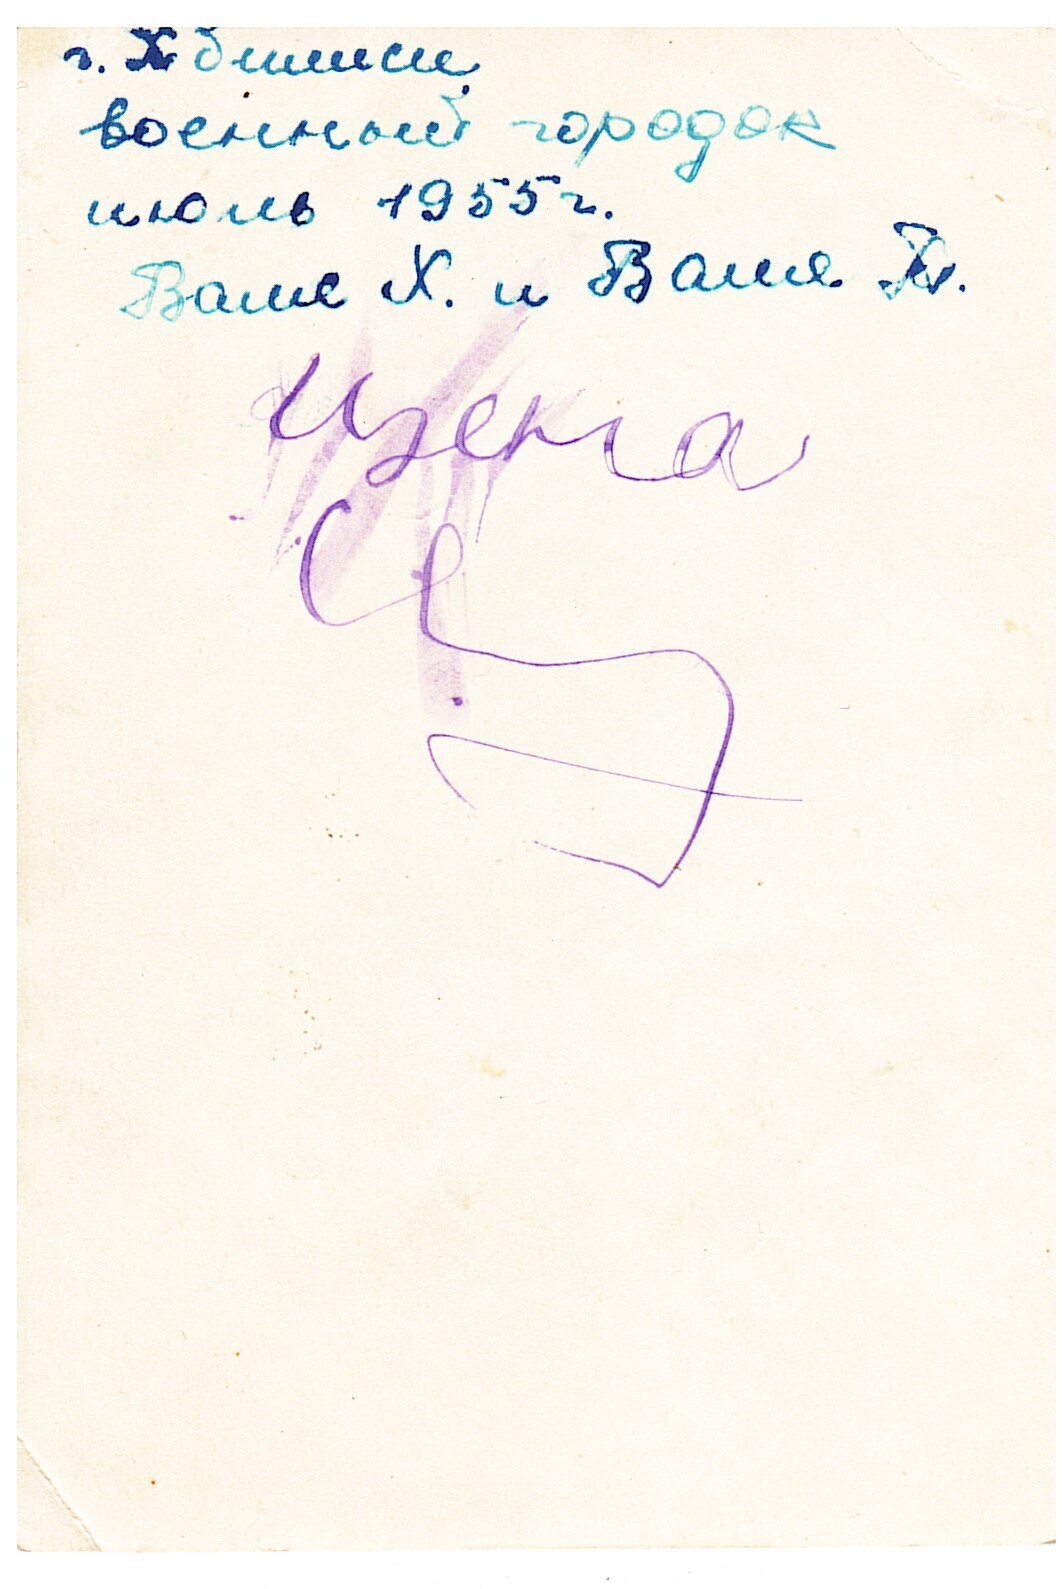 г. Тбилиси
военный городок
июль 1955г.
Ваше Х. и Ваше П.